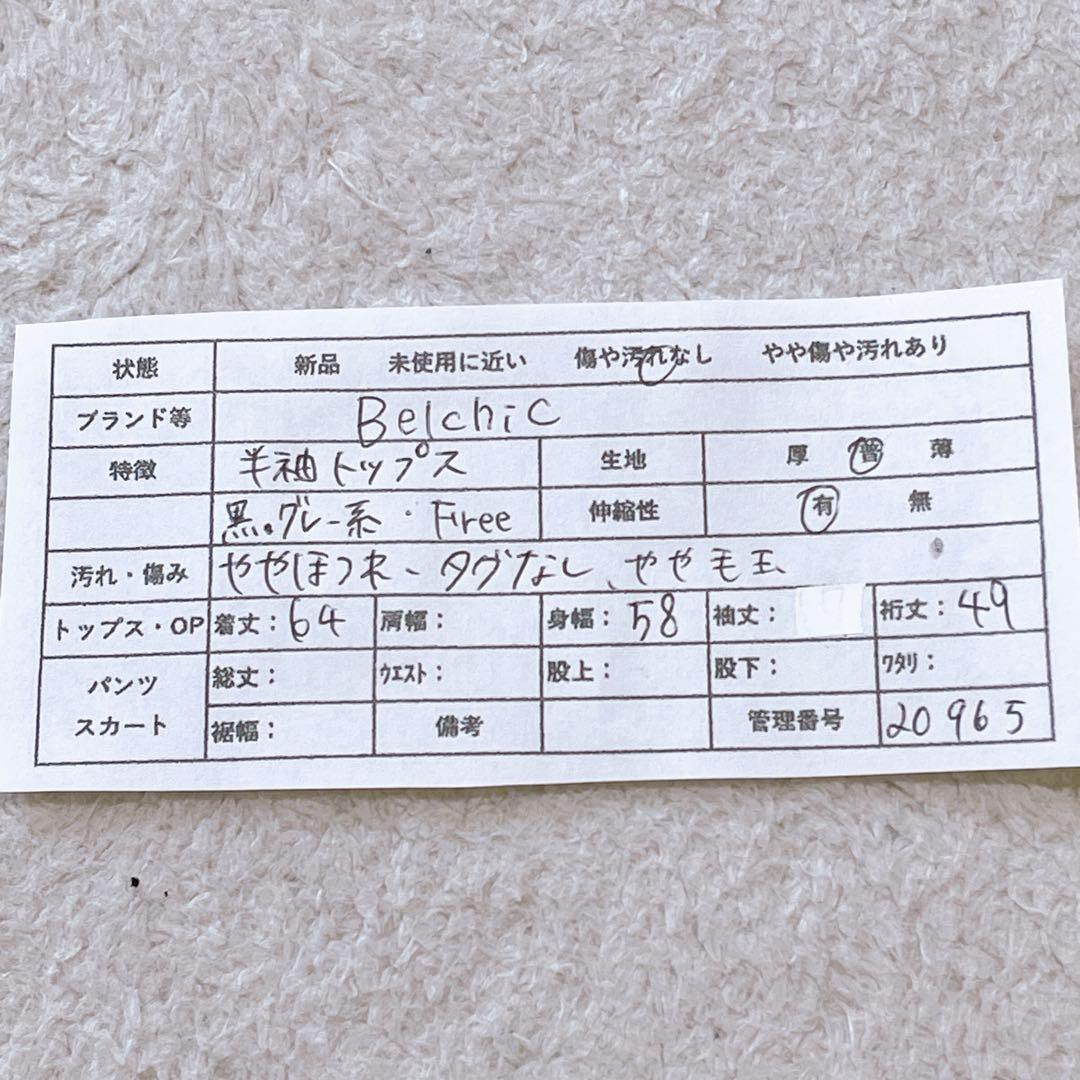 状態 新品 未使用に近い 傷や汚れなし やや傷や汚れあり
ブランド等 Belchic
特徴 半袖トップス 生地 厚 普 薄
黒。グレー系・Free 伸縮性 有 無
汚れ・傷み ややほつれ、タグなし、やや毛玉
トップス・OP 着丈：64 肩幅： 身幅：58 袖丈： 裄丈：49
パンツ 総丈： ｳｴｽﾄ： 股上： 股下： ﾜﾀﾘ：
スカート 裾幅： 備考 管理番号 20965